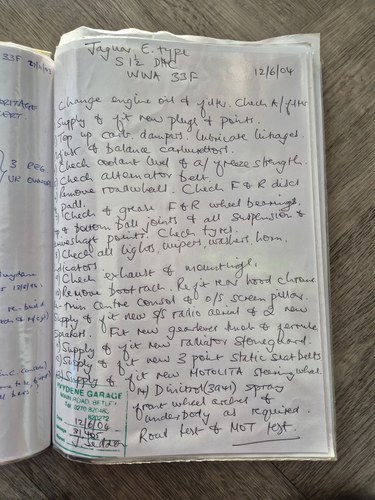 33F
Jaguar E. type
S 1½ DHC
WWA 33F
12/6/04
change engine oil & filter. Check A/filter
Supply & fit new plugs & points.
Top up carb. dampers. Lubricate linkages.
& balance carburettors.
Check coolant level & a/freeze strength.
Check alternator belt.
Remove roadwheels. Check F & R discs
& pads.
Check & grease F & R wheel bearings,
& bottom ball joints & all suspension &
points. Check tyres.
Check all lights, wipers, washers, horn,
Check exhaust & mountings.
Remove bootrack. Refit rear hood chrome
Re-trim Centre consol & o/s screen pillar.
Supply & fit new s/s radio aerial & 2 new
Speakers. Fit new gearlever knob & ferrule
Supply & fit new radiator stoneguard.
Supply & fit new 3 point static seat belts
Supply & fit new MOTOLITA steering wheel.
14) Dinitrol (3a41) spray
front wheel arches &
underbody as required.
Road test & MOT test.
GARAGE
12/6/04
3 REG